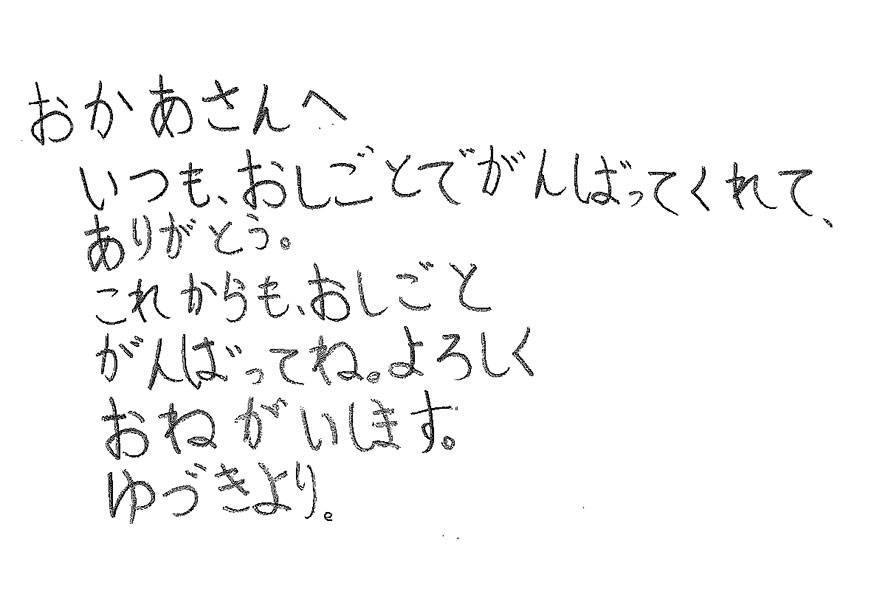 おかあさんへ
いつも、おしごとでがんばってくれて、
ありがとう。
これからも、おしごと
がんばってね。よろしく
おねがいします。
ゆづきより。